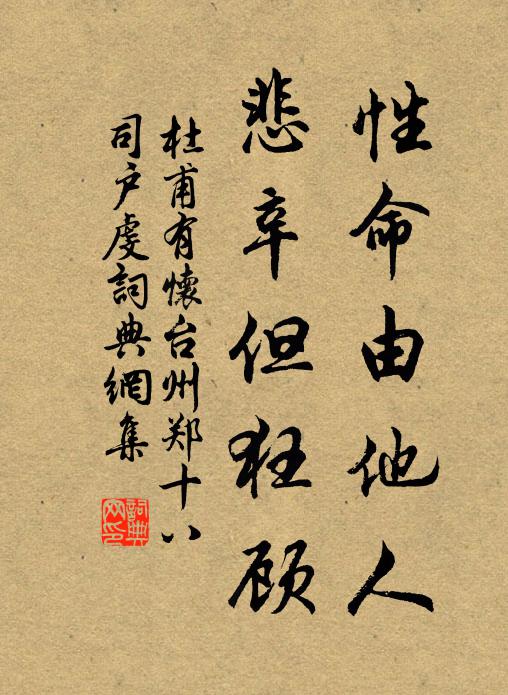 性命由他人
悲辛但狂顾
杜甫有懷台州郑十八
司户虔詞典網集
詞典
网印